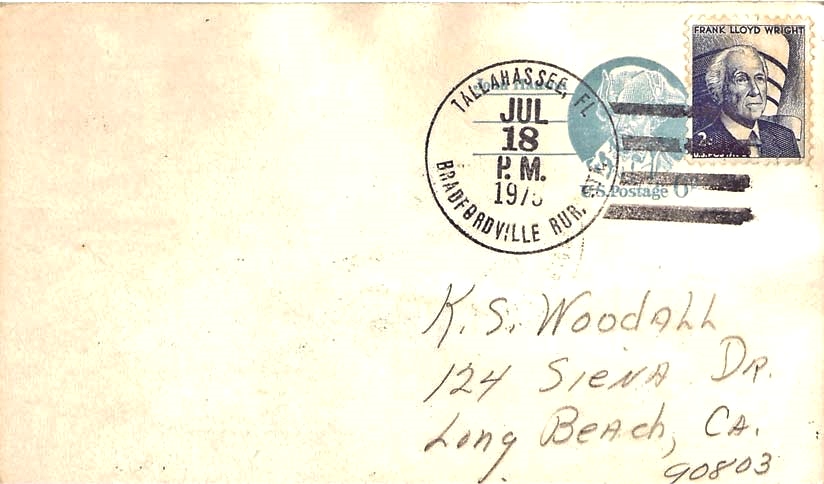 FRANK LLOYD WRIGHT
2¢
U.S. POSTAGE
TALLAHASSEE, FL
JUL
18
P. M.
BRADFORDVILLE RUR.
U.S. Postage 6
K. S. Woodall
124 Siena Dr.
Long Beach, CA.
90803